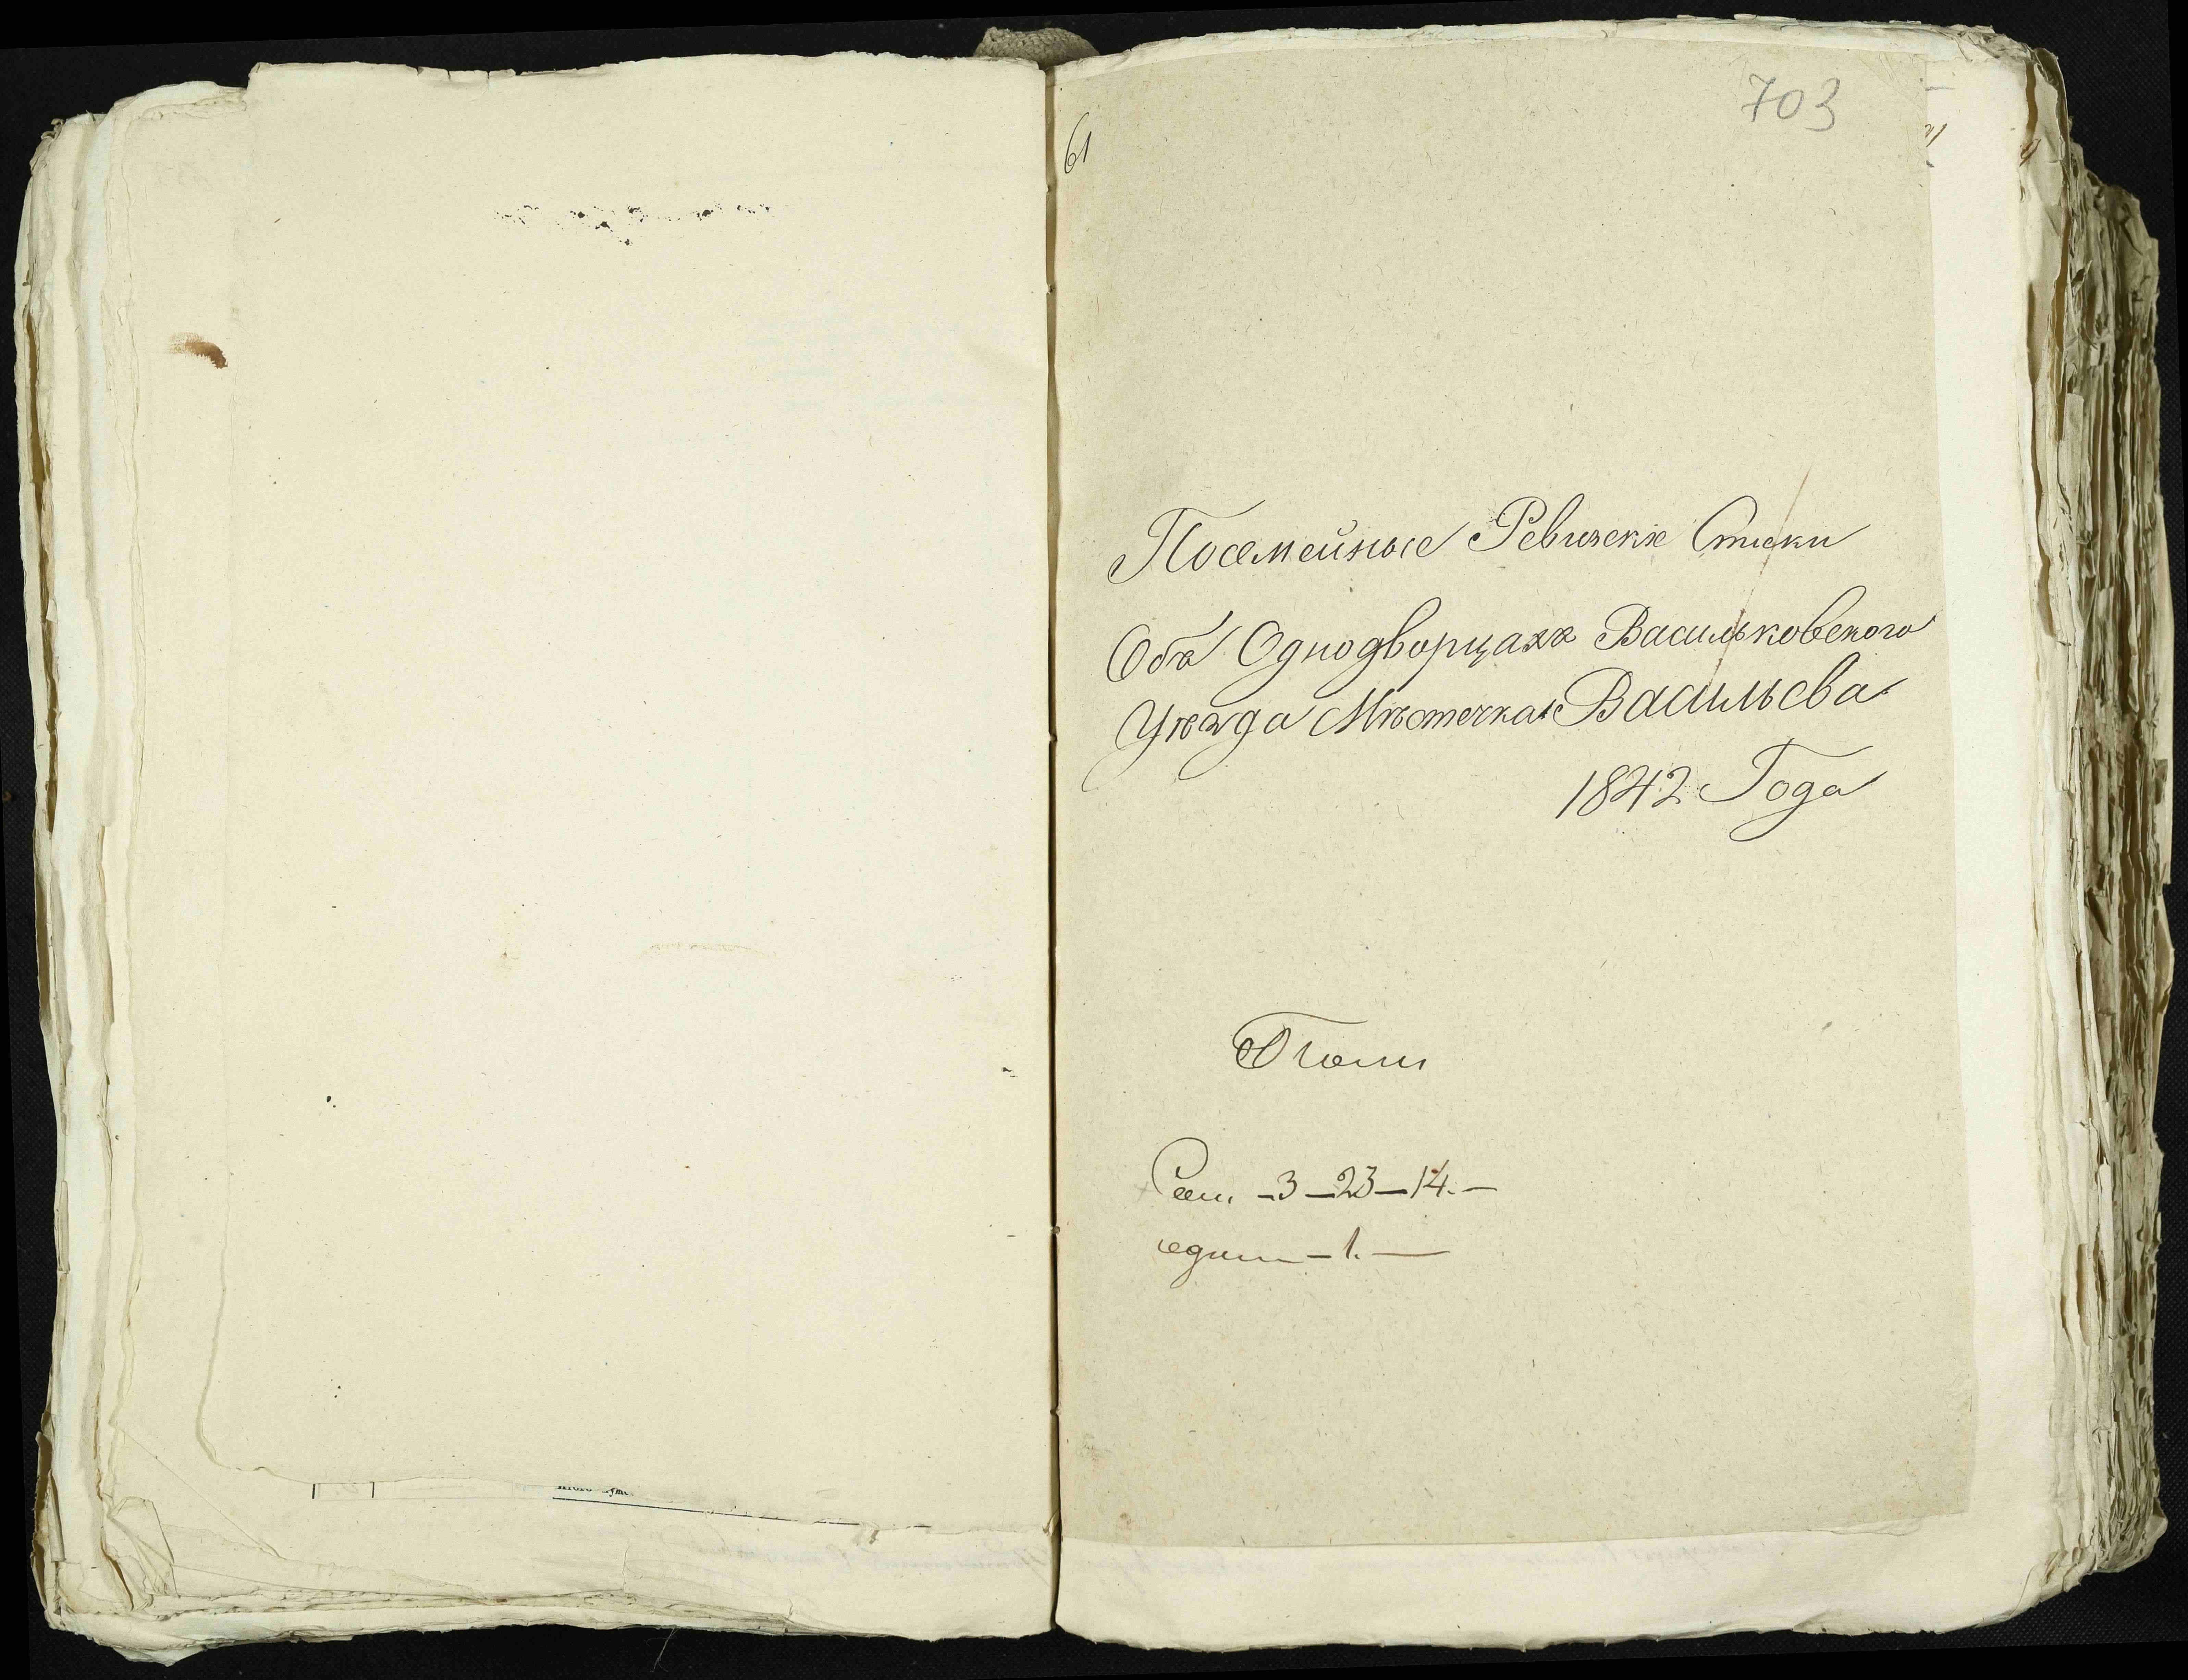 703
61
Посемейные Ревизскіе Списки
Объ Однодворцахъ Васильковскаго
Уѣзда Мѣстечка Васильева
1842 Года
Сем. – 3 – 23 – 14. –
един – 1. –